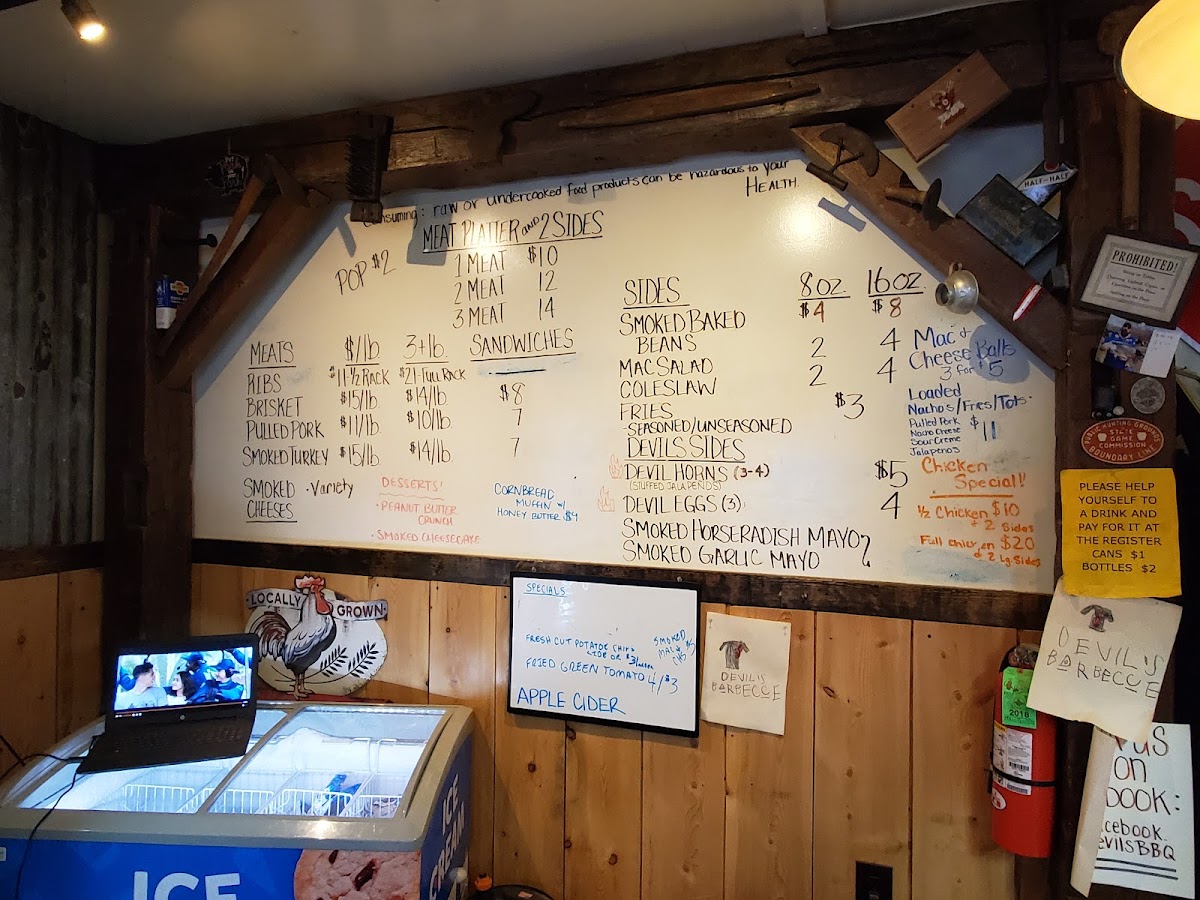 Consuming: raw or undercooked food products can be hazardous to your
HEALTH
MEAT PLATTER AND 2 SIDES
1 MEAT $10
2 MEAT 12
3 MEAT 14
POP $2
MEATS $/lb. 3+lb. SANDWICHES
RIBS $11 ½ RACK $21-FULL RACK
BRISKET $15/lb. $14/lb. $8
PULLED PORK $11/lb. $10/lb. 7
SMOKED TURKEY $15/lb. $14/lb. 7
SMOKED · Variety
CHEESES
DESSERTS!
· PEANUT BUTTER
CRUNCH
· SMOKED CHEESECAKE
CORNBREAD
MUFFIN W/
HONEY BUTTER $4
SIDES 8oz. 16oz.
SMOKED BAKED $4 $8
BEANS
MAC SALAD 2 4
COLESLAW 2 4
FRIES $3
-SEASONED/UNSEASONED
DEVILS SIDES
DEVIL HORNS (3-4) $5
(STUFFED JALAPENOS)
DEVIL EGGS (3) 4
SMOKED HORSERADISH MAYO
SMOKED GARLIC MAYO
Mac &
Cheese Balls
3 for $5
Loaded
Nachos/Fries/Tots
Pulled Pork $11
Nacho Cheese
Sour Creme
Jalapenos
Chicken
Special!
½ Chicken $10
+ 2 Sides
Full Chicken $20
+ 2 Lg. Sides
HALF-HALF
PROHIBITED!
PUBLIC HUNTING GROUNDS
STATE
GAME
COMMISSION
BOUNDARY LINE
PLEASE HELP
YOURSELF TO
A DRINK AND
PAY FOR IT AT
THE REGISTER
CANS $1
BOTTLES $2
LOCALLY GROWN
SPECIALS
FRESH CUT POTATO CHIPS
FRIED GREEN TOMATO 4/$3
APPLE CIDER
SMOKED
DEVIL'S
BARBECUE
DEVIL'S
BARBECUE
2018
us
on
book:
acebook.
evilsBBQ
ICE
ICE
CREAM